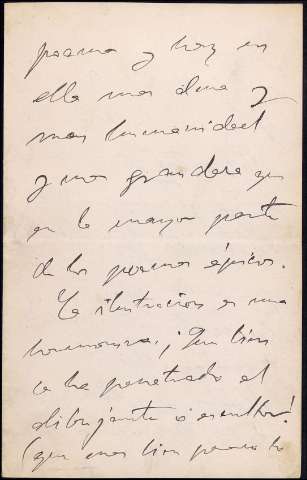 poema y hay en
ella mas alma y
mas humanidad
y mas grandeza que
en la mayor parte
de los poemas épicos.
La ilustracion es una
hermosura. ¡Que bien
la ha penetrado el
dibujante ó escultor!
(que mas bien parece lo